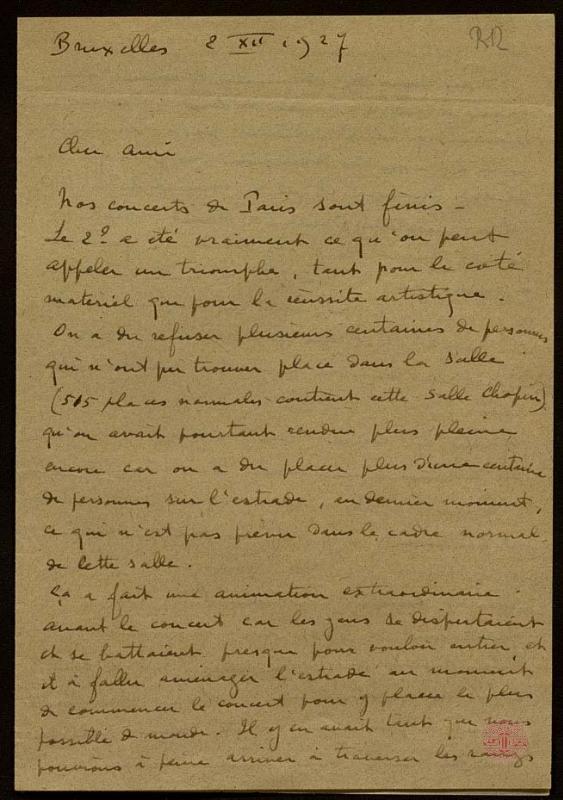 Bruxelles 2 XII 1927
RR
Cher ami
Nos concerts de Paris sont finis –
Le 2º a été vraiment ce qu'on peut
appeler un triomphe, tant pour le coté
materiel que pour la réussite artistique.
On a du refuser plusieurs centaines de personnes
qui n'ont pu trouver place dans la salle
(505 places normales contient cette salle Chopin)
qu'on avait pourtant rendue plus pleine
encore car on a du placer plus d'une centaine
de personnes sur l'estrade, au dernier moment,
ce qui n'est pas prévu dans le cadre normal
de cette salle.
Ça a fait une animation extraordinaire
avant le concert car les gens se disputaient
et se battaient presque pour vouloir entrer, et
il a fallu aménager l'estrade au moment
de commencer le concert pour y placer le plus
possible de monde. Il y en avait tant que nous
pouvions à peine arriver à traverser les rangs